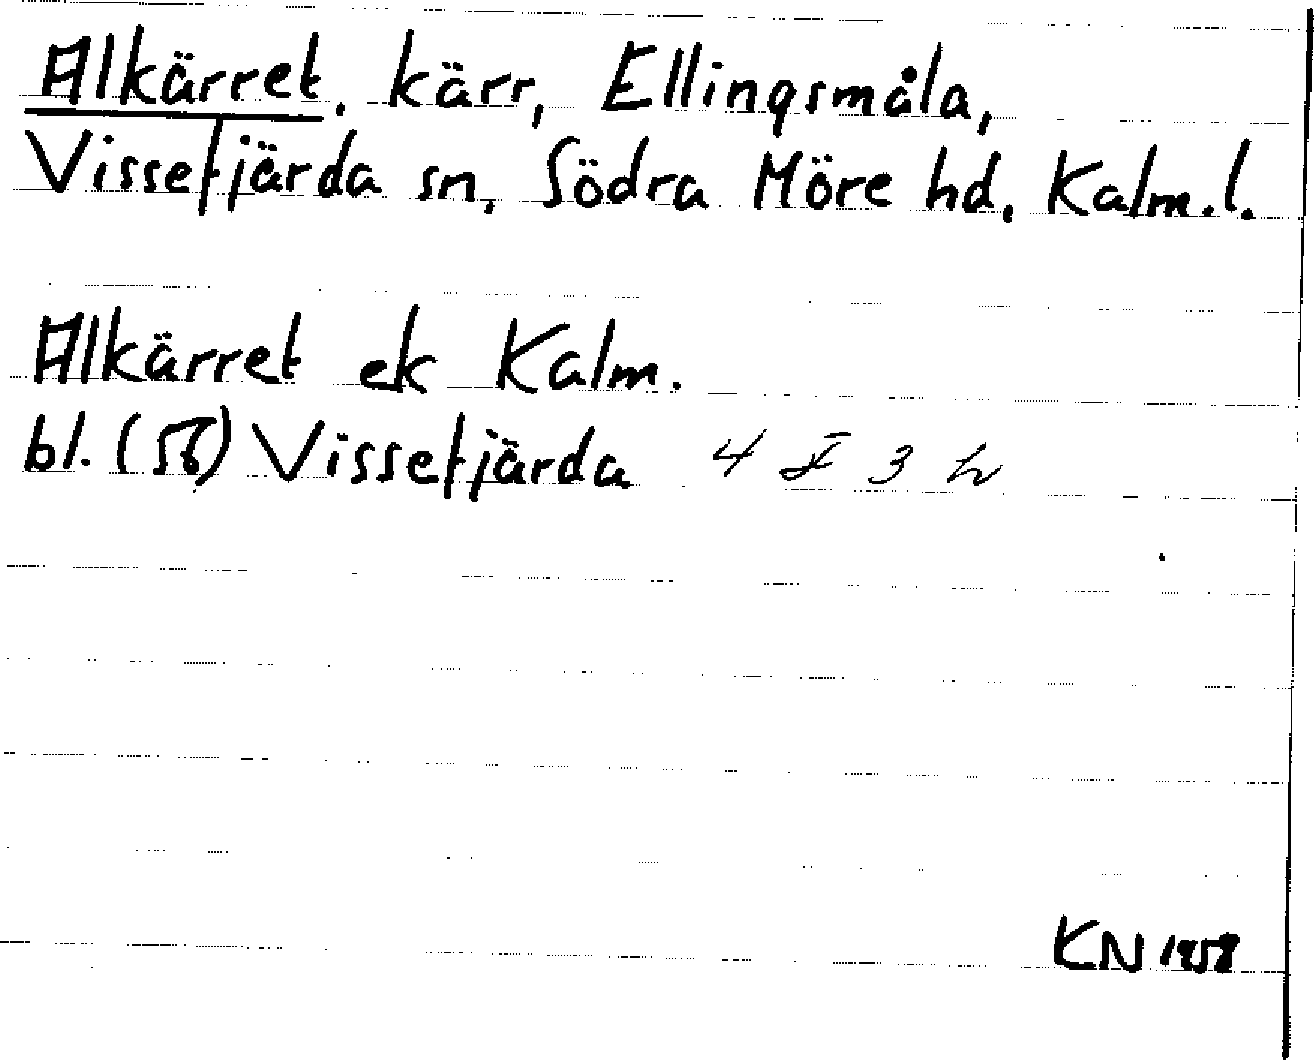 Alkärret, kärr, Ellingsmåla,
Vissefjärda sn, Södra Möre hd, Kalm.l.
Alkärret ek Kalm.
bl. (56) Vissefjärda 4 F 3 h
KN 1958